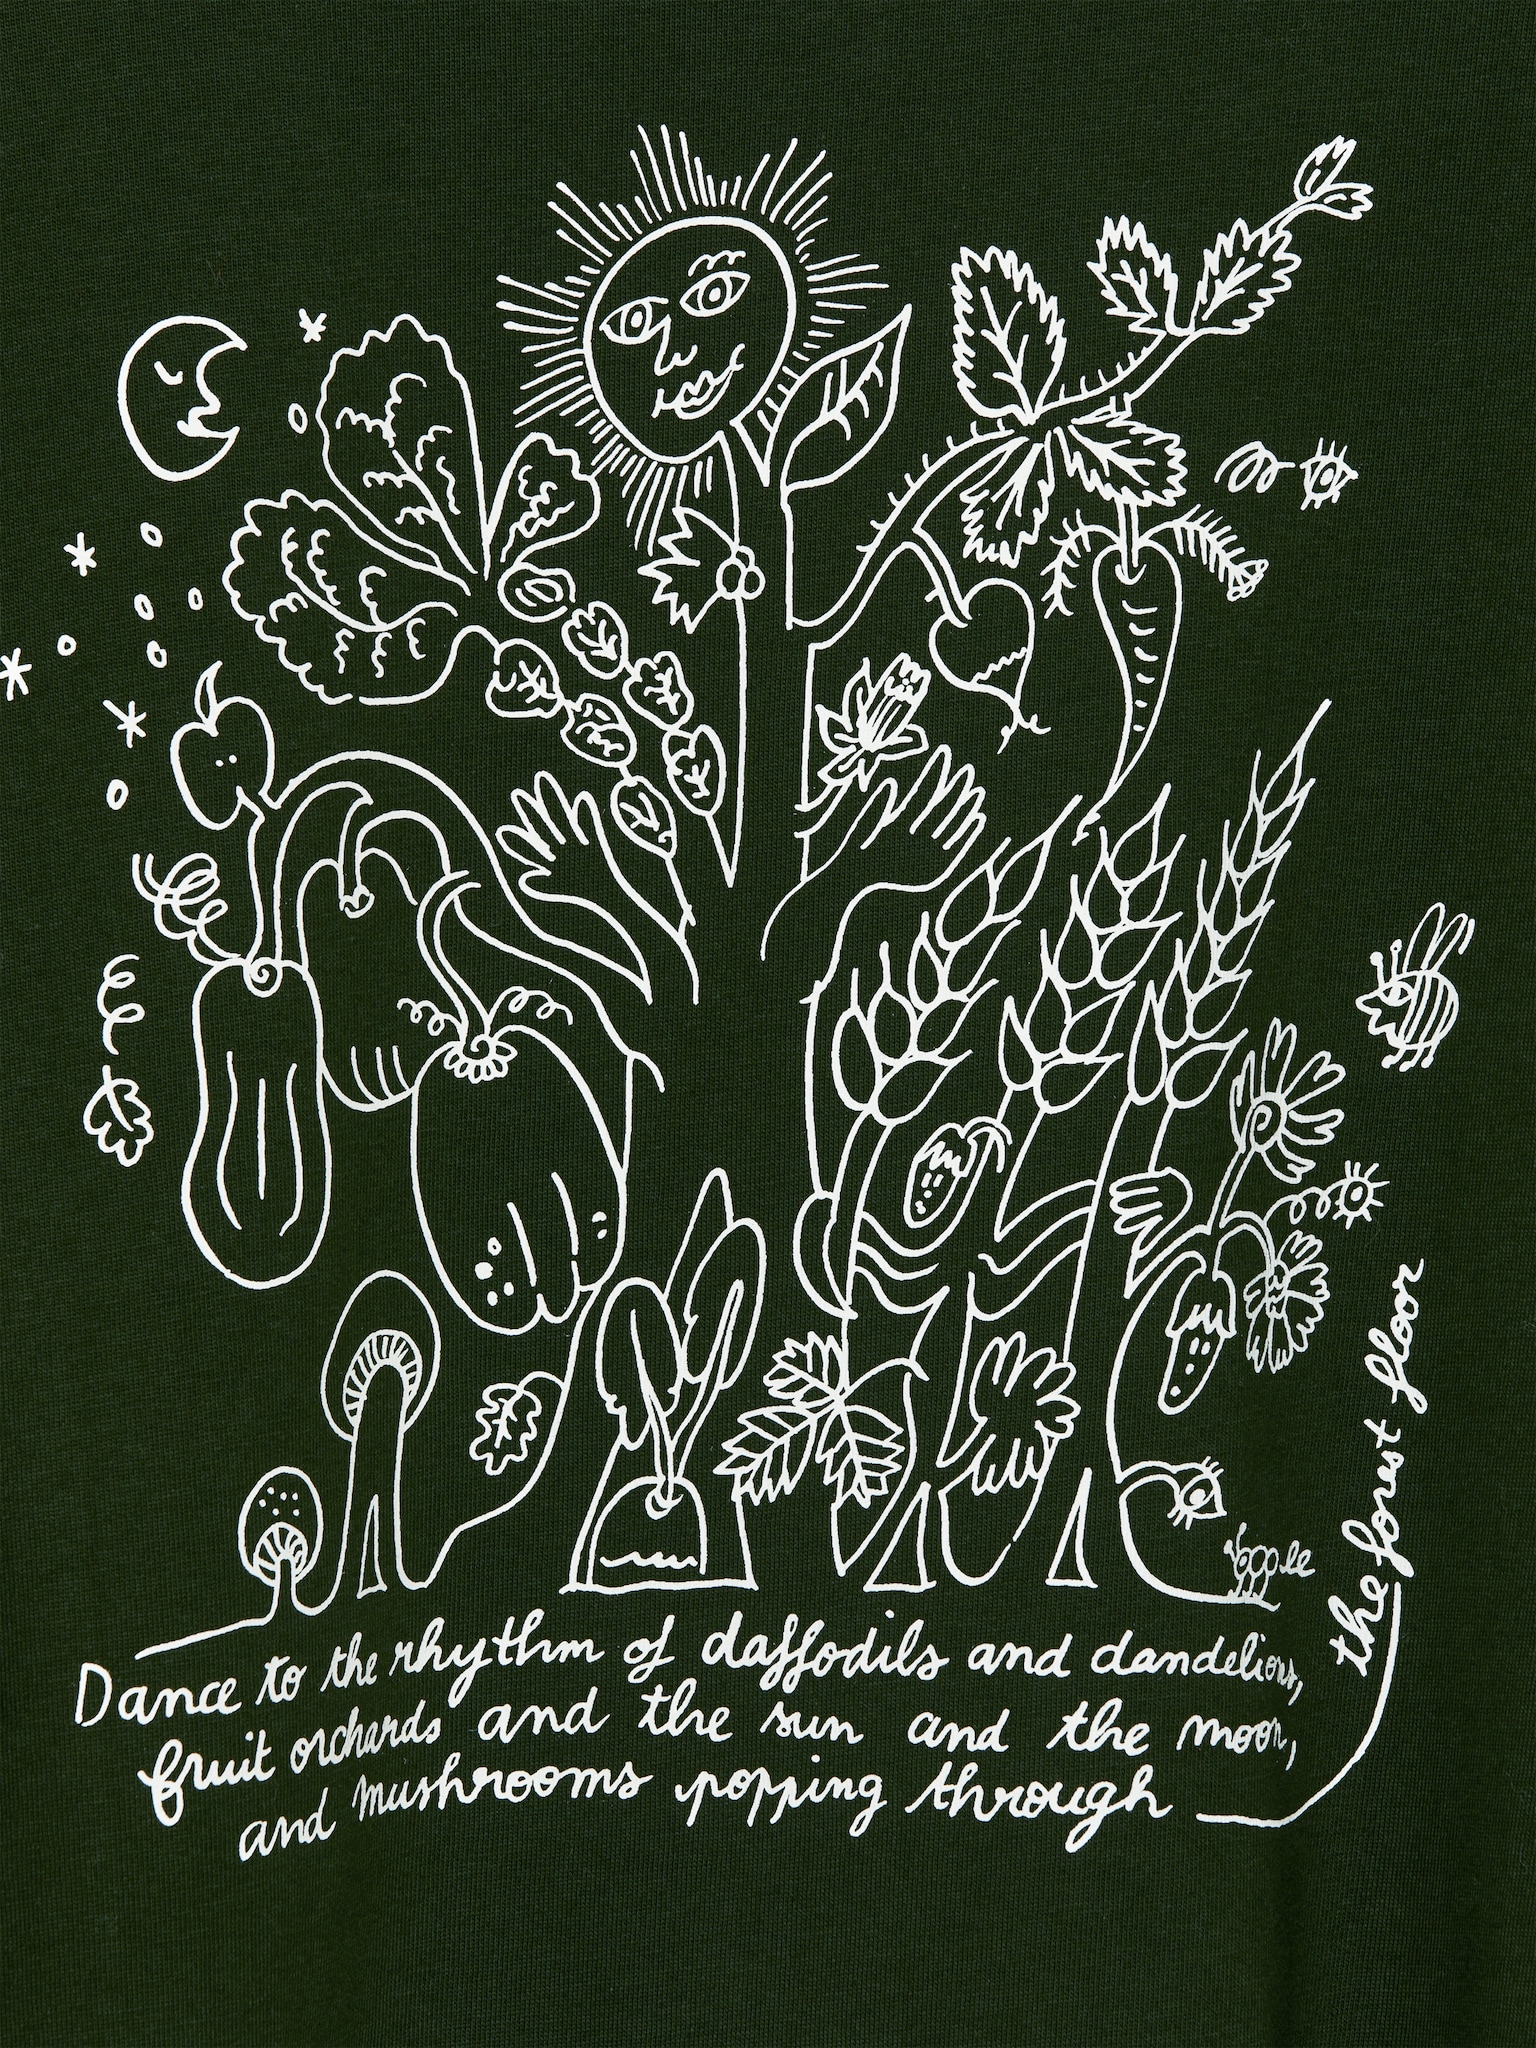 Dance to the rhythm of daffodils and dandelions,
fruit orchards and the sun and the moon,
and mushrooms popping through
the forest floor